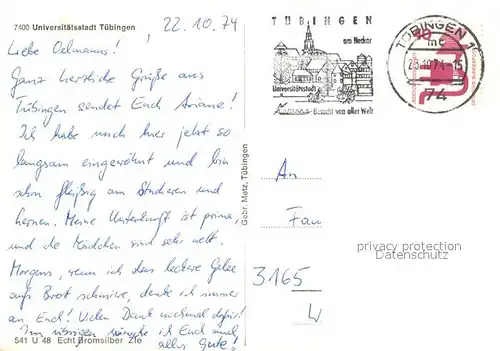 7400 Universitätsstadt Tübingen
22.10.74
Liebe Oelmanns!
Ganz herzliche Grüße aus
Tübingen sendet Euch Ariane!
Ich habe mich hier jetzt so
langsam eingewöhnt und bin
schon fleißig am Studieren und
Lernen. Meine Unterkunft ist prima,
und die Mädchen sind sehr nett.
Morgens, wenn ich das leckere Gelee
aufs Brot schmiere, denke ich immer
an Euch! Vielen Dank nochmal dafür!
Im übrigen wünsche ich Euch
alles Gute!
541 U 48 Echt Bromsilber
Gebr. Metz, Tübingen
TÜBINGEN
am Neckar
Universitätsstadt
Besucht von aller Welt
TÜBINGEN 1
mc
23.10.74-15
74
An
Fau
privacy protection
Datenschutz
3165